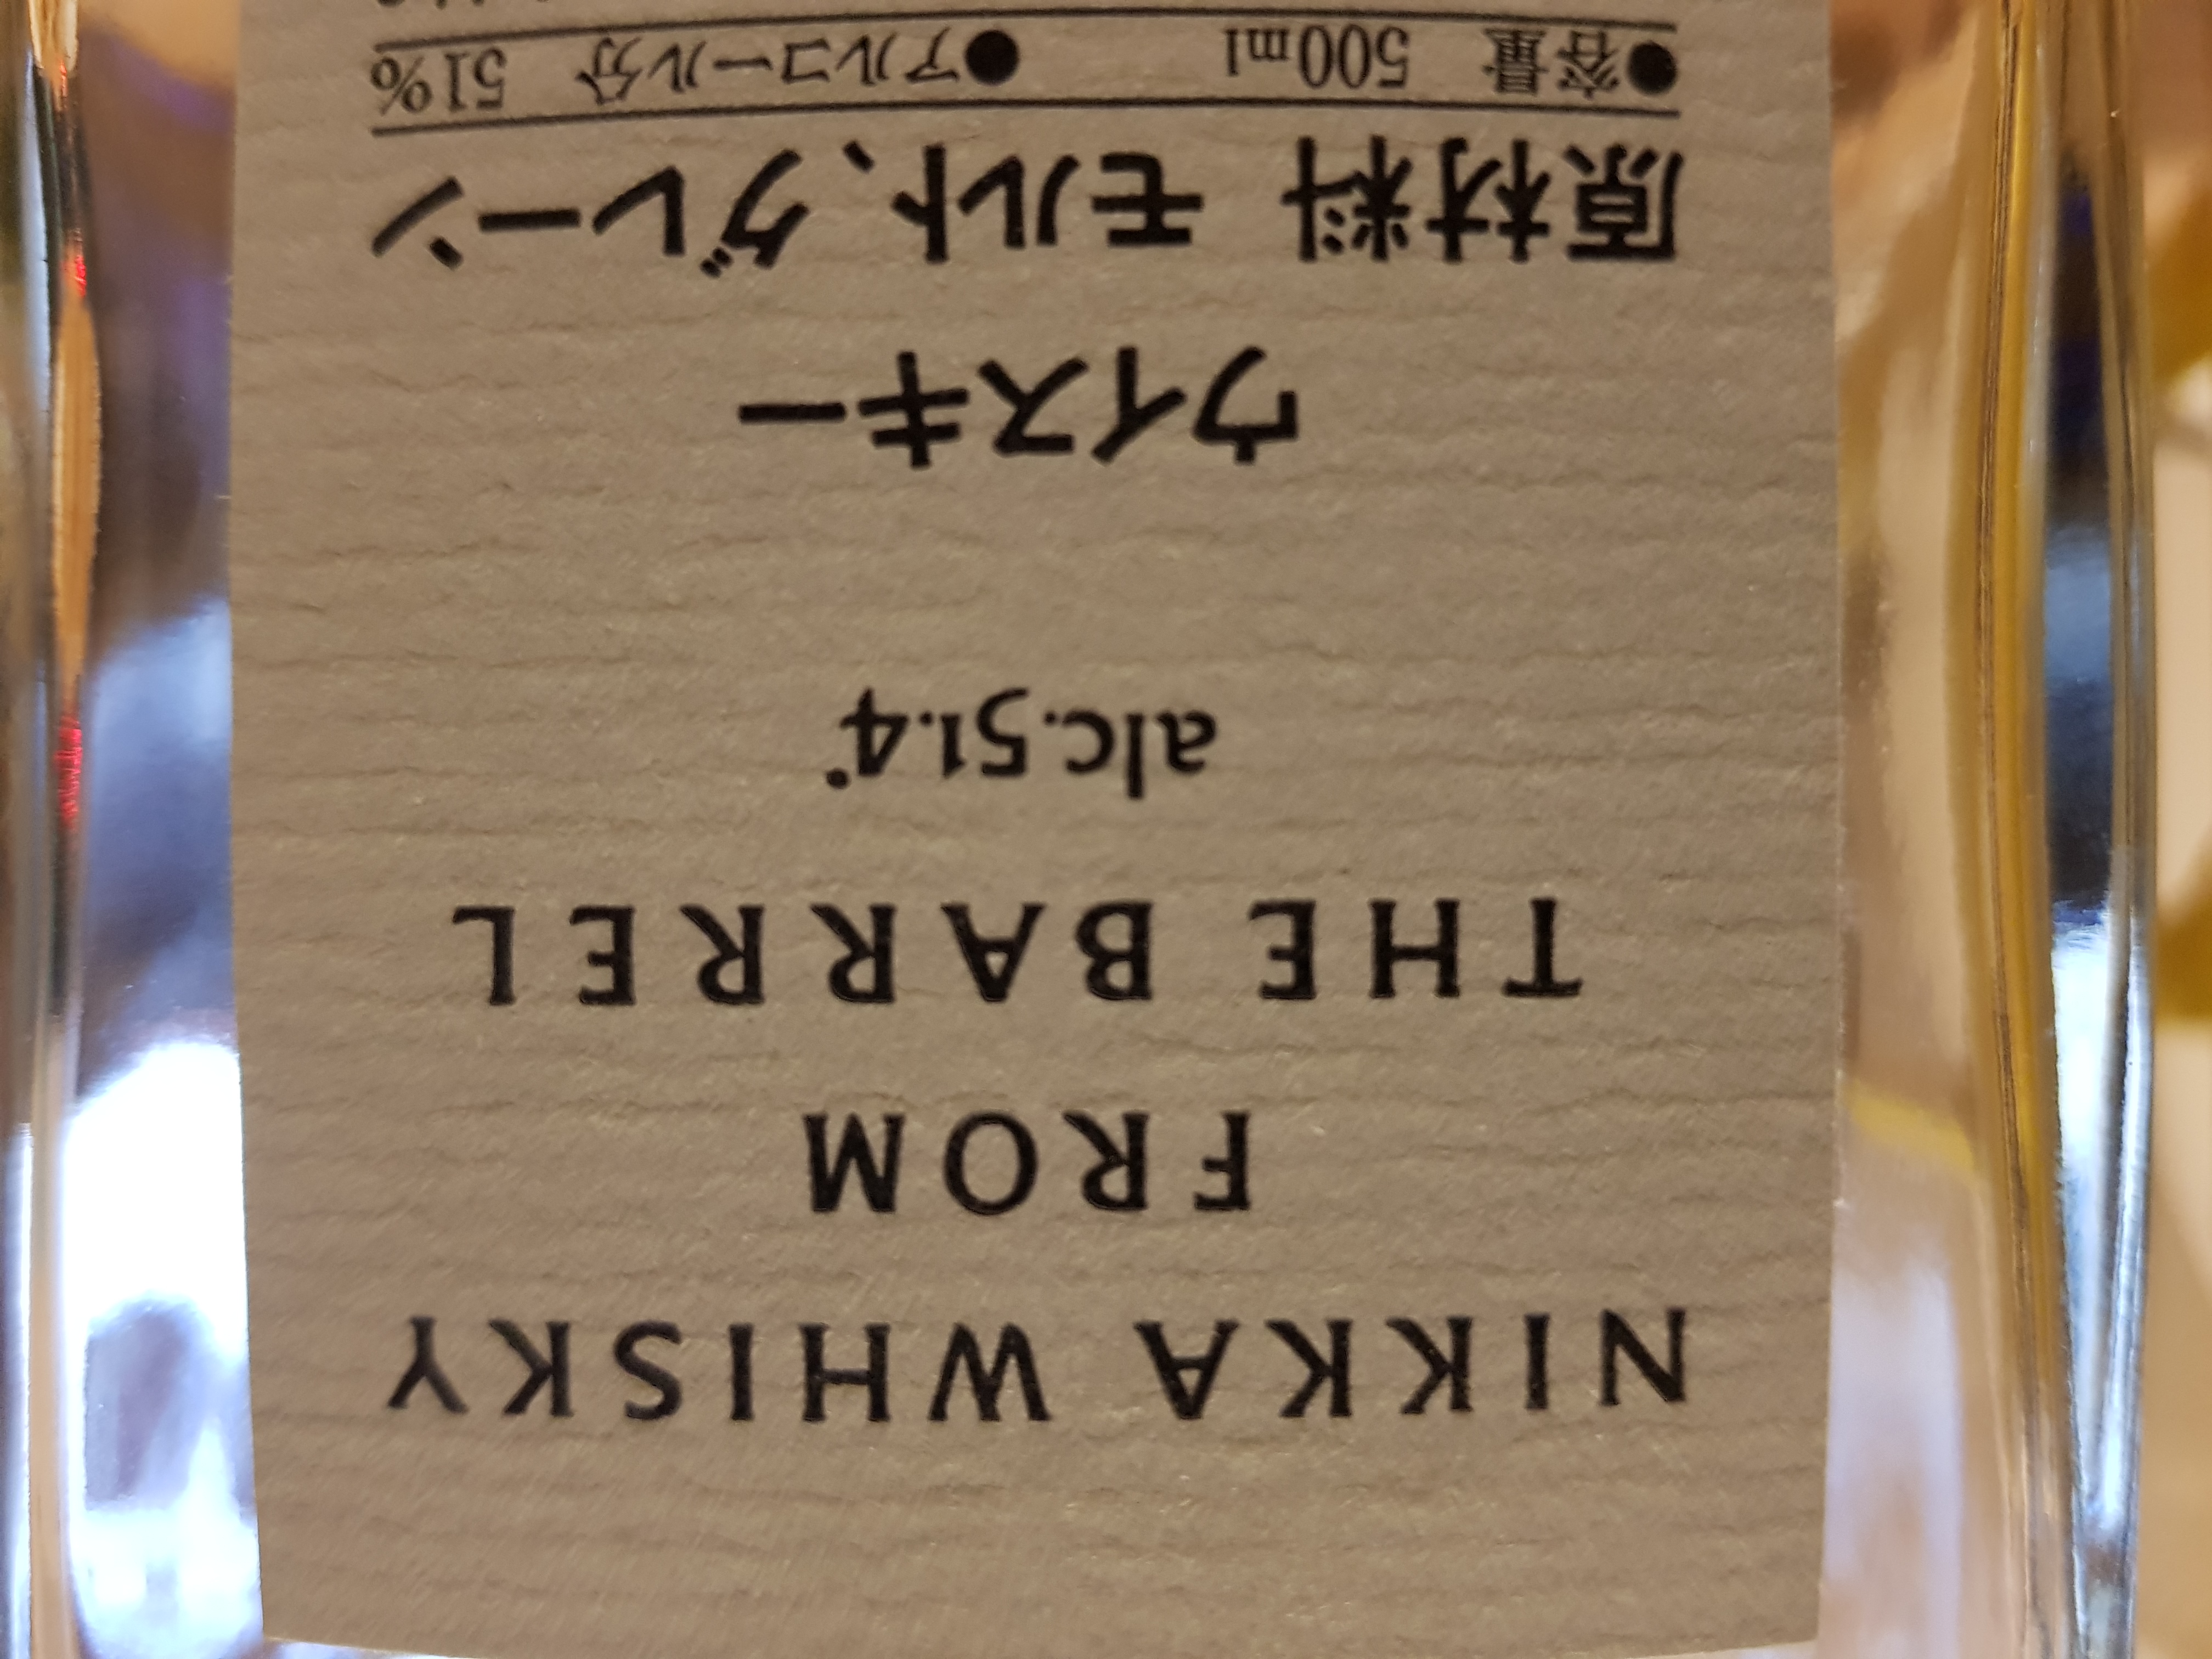 NIKKA WHISKY
FROM
THE BARREL
alc.51.4°
ウイスキー
原材料 モルト、グレーン
●容量 500ml ●アルコール分 51%